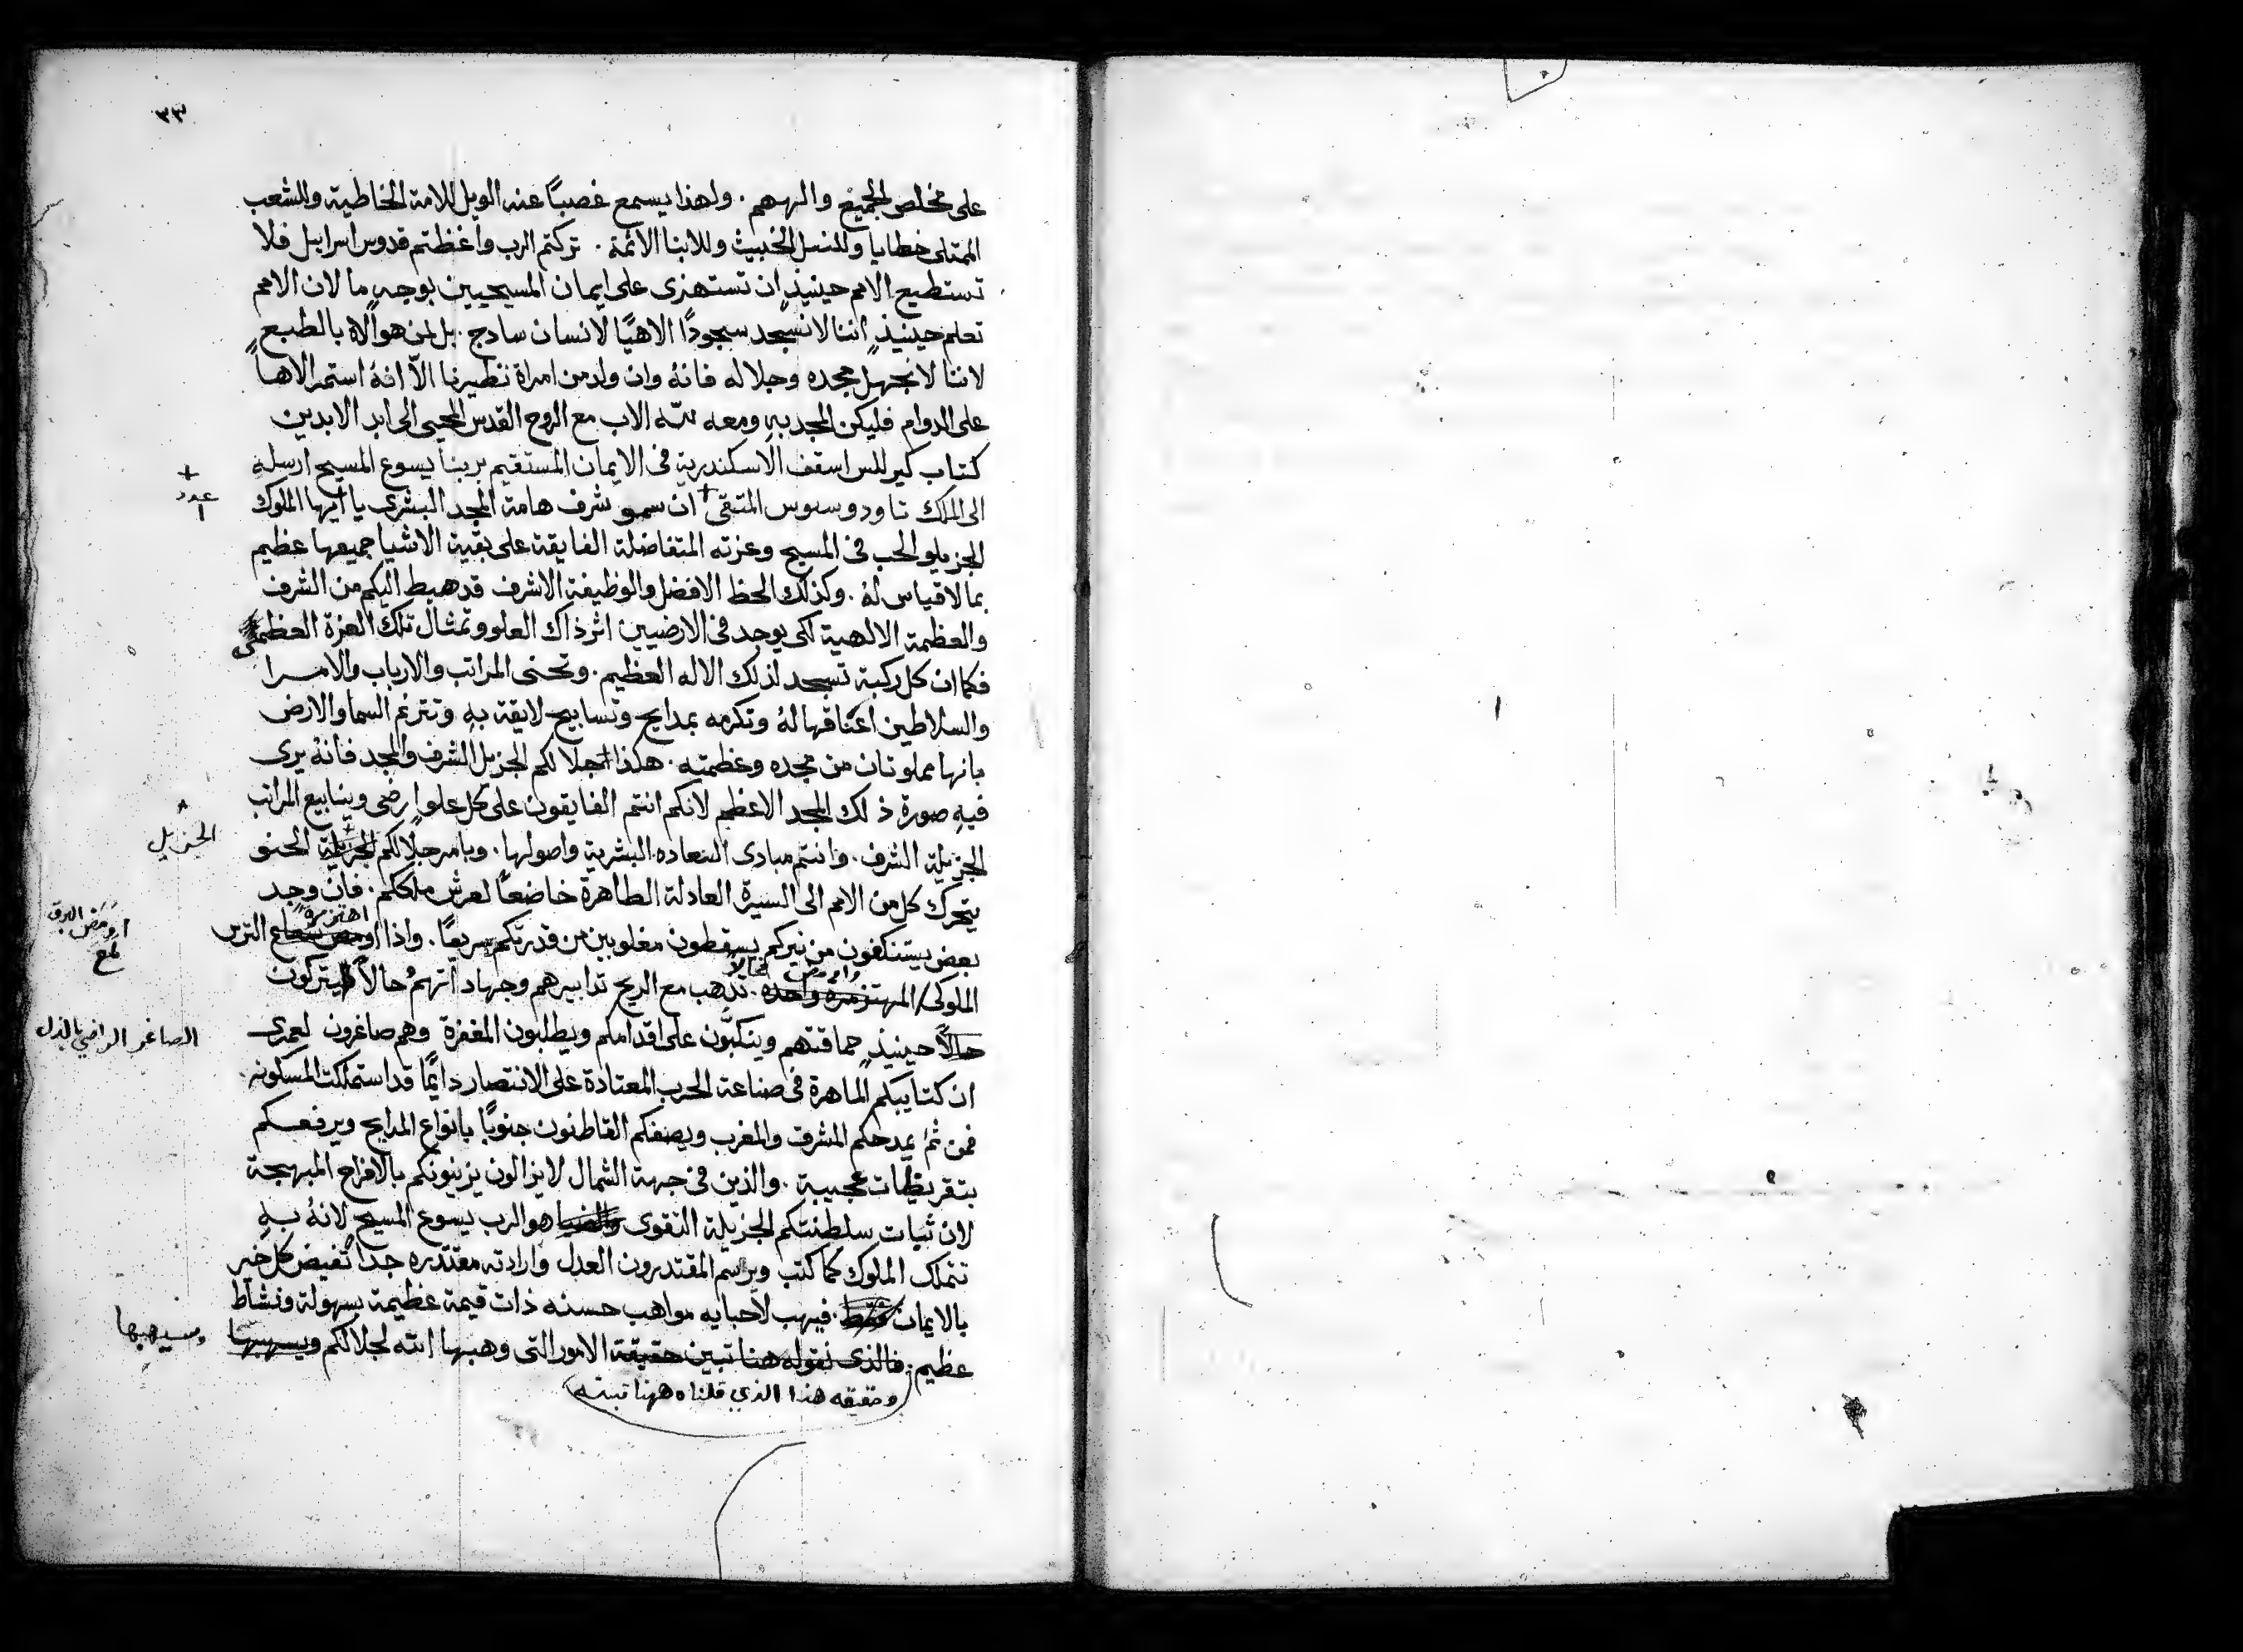 ٣٣
على مخلص الجميع والههم . ولهذا يسمع غصباً عنه الويل للامة الخاطية وللشعب
الممتلى خطايا وللنسل الخبيث وللابنا الاثمة . تركتم الرب واغظتم قدوس اسراييل فلا
تستطيع الامم حينيذٍ ان تستهزى على ايمان المسيحيين بوجهٍ ما لان الامم
تعلم حينيذٍ اننا لا نسجد سجودًا الاهيًا لانسان سادج . بل لمن هو الاهٌ بالطبع
لاننا لا نجهل مجده وجلاله فانهُ وان ولد من امراة نظيرنا الّا انهُ استمر الاهاً
على الدوام فليكن المجد بهِ ومعه لله الاب مع الروح القدس المحيى الى ابد الابدين
كتاب كيرللس اسقف الاسكندرية فى الايمان المستقيم بربنا يسوع المسيح ارسلهِ
+
عدد
١
الى الملك تاودوسيوس المتقى + ان سمو شرف هامة المجد البشرى يا ايها الملوك
الجزيلو الحب فى المسيح وعزته المتفاضلة الفايقة على بقية الاشيا جميعها عظيم
بما لا قياس لهُ . وكذلك الحظ الافضل والوظيفة الاشرف قد هبط اليكم من الشرف
والعظمة الالهية لكى يوجد فى الارضيين اثر ذاك العلو وتمثال تلك العزة العظمى
فكما ان كل ركبة تسجد لذلك الاله العظيم . وتحنى المراتب والارباب والامرا
والسلاطين اعناقها لهُ وتكرمه بمدايح وتسابيح لايقة بهِ وتترنم السما والارض
بانها مملوتان من مجده وعظمته . هكذا + جلالكم الجزيل الشرف والمجد فانهُ يرى
فيهِ صورة ذلك المجد الاعظم لانكم انتم الفايقون على كل علو ارضى وينابيع المراتب
الجزيل
الجزيلة الشرف . وانتم مبادى السعاده البشرية واصولها . وبامر جلالكم الجزيلة الحنو
يتحرك كل من الامم الى السيرة العادلة الطاهرة خاضعاً لعرش ملككم . فان وجد
اهتز مرةً
اومض البرق
لمع
بعض يستنكفون من نيركم يسقطون مغلوبين من قدرتكم سريعًا . واذا اومض شعاع الترس
واومض
حالاً
الملوكى المهتز مرةً واحده . تذهب مع الريح تدابيرهم وجهاداتهم حالاً ليتركون
الصاغر الراضي بالذل
حالاً حينيذٍ حماقتهم وينكبّون على اقدامكم ويطلبون المغفرة وهم صاغرون لعمرى
ان كتايبكم الماهرة فى صناعة الحرب المعتادة على الانتصار دايمًا قد استملكت المسكونه .
فمن ثمَ يمدحكم المشرق والمغرب ويصفكم القاطنون جنوبًا بانواع المدايح ويرفعكم
بتقريظات عجيبة . والذين فى جهة الشمال لا يزالون يزينونكم بالافراح المبهجة
لان ثبات سلطنتكم الجزيلة التقوى والضيا هو الرب يسوع المسيح لانهُ بهِ
تتملك الملوك كما كتب ويرسم المقتدرون العدل وارادته مقتدره جداً تفيض كل خير
بالايمان فقط . فيهب لاحبايه مواهب حسنه ذات قيمة عظيمة بسهولة ونشاط
وسيهبها
عظيم . فالذى نقوله هنا تبين حقيقة الامور التى وهبها الله لجلالكم ويسهبها
وحقيقه هذا الذي قلناه ههنا تبينه